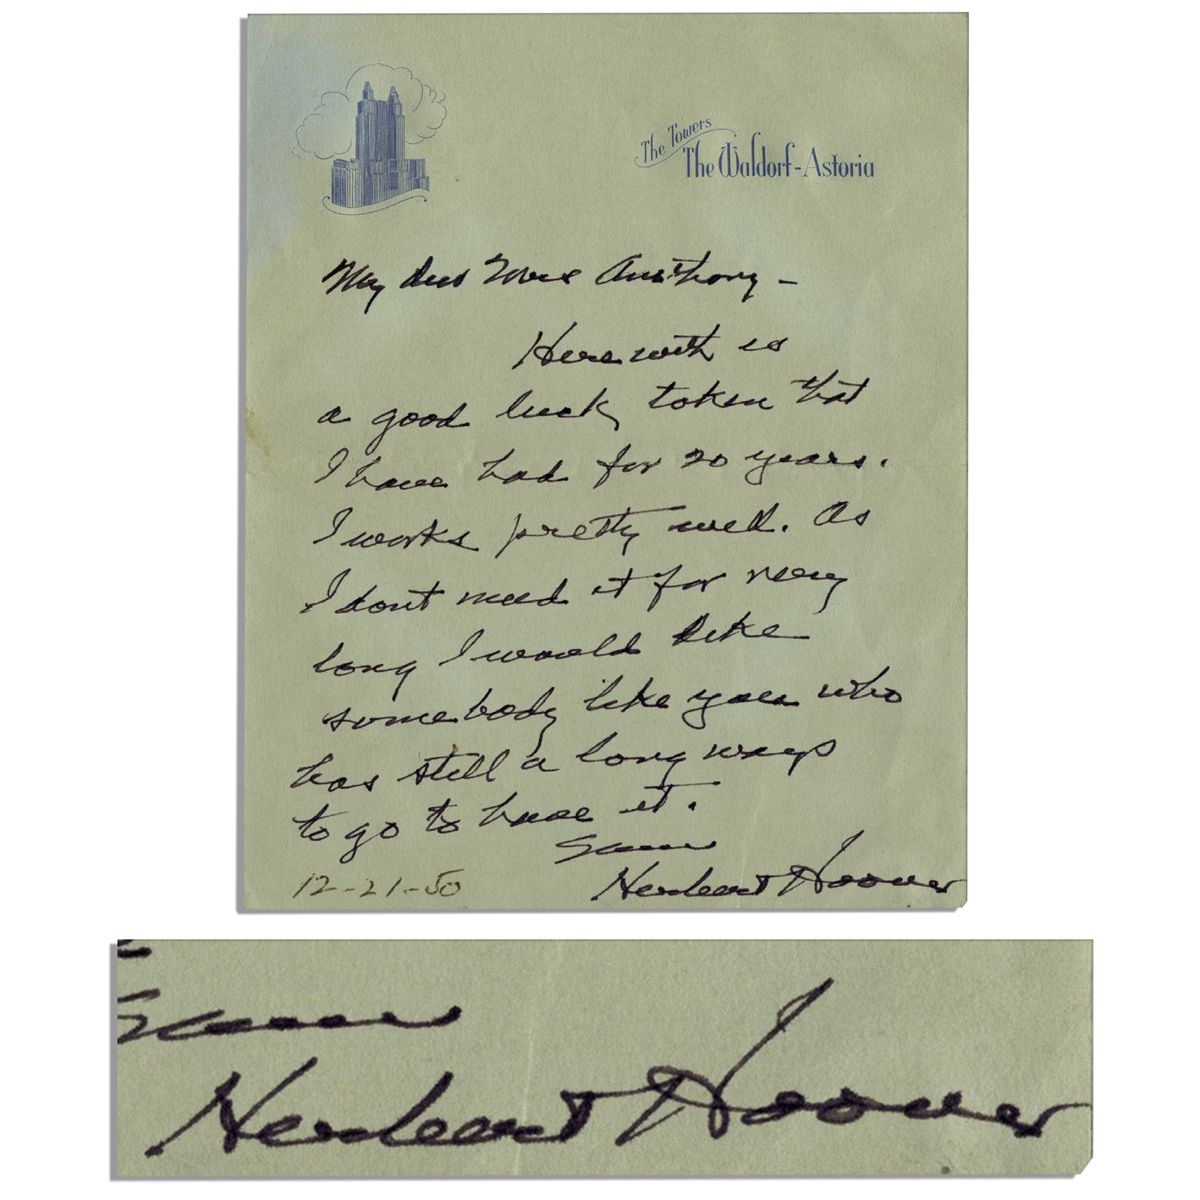 The Towers
The Waldorf-Astoria
My dear Miss Anthony –
Herewith is
a good luck token that
I have had for 20 years.
I works pretty well. As
I dont need it for very
long I would like
somebody like you who
has still a long ways
to go to have it.
Herbert Hoover
12-21-50
Herbert Hoover